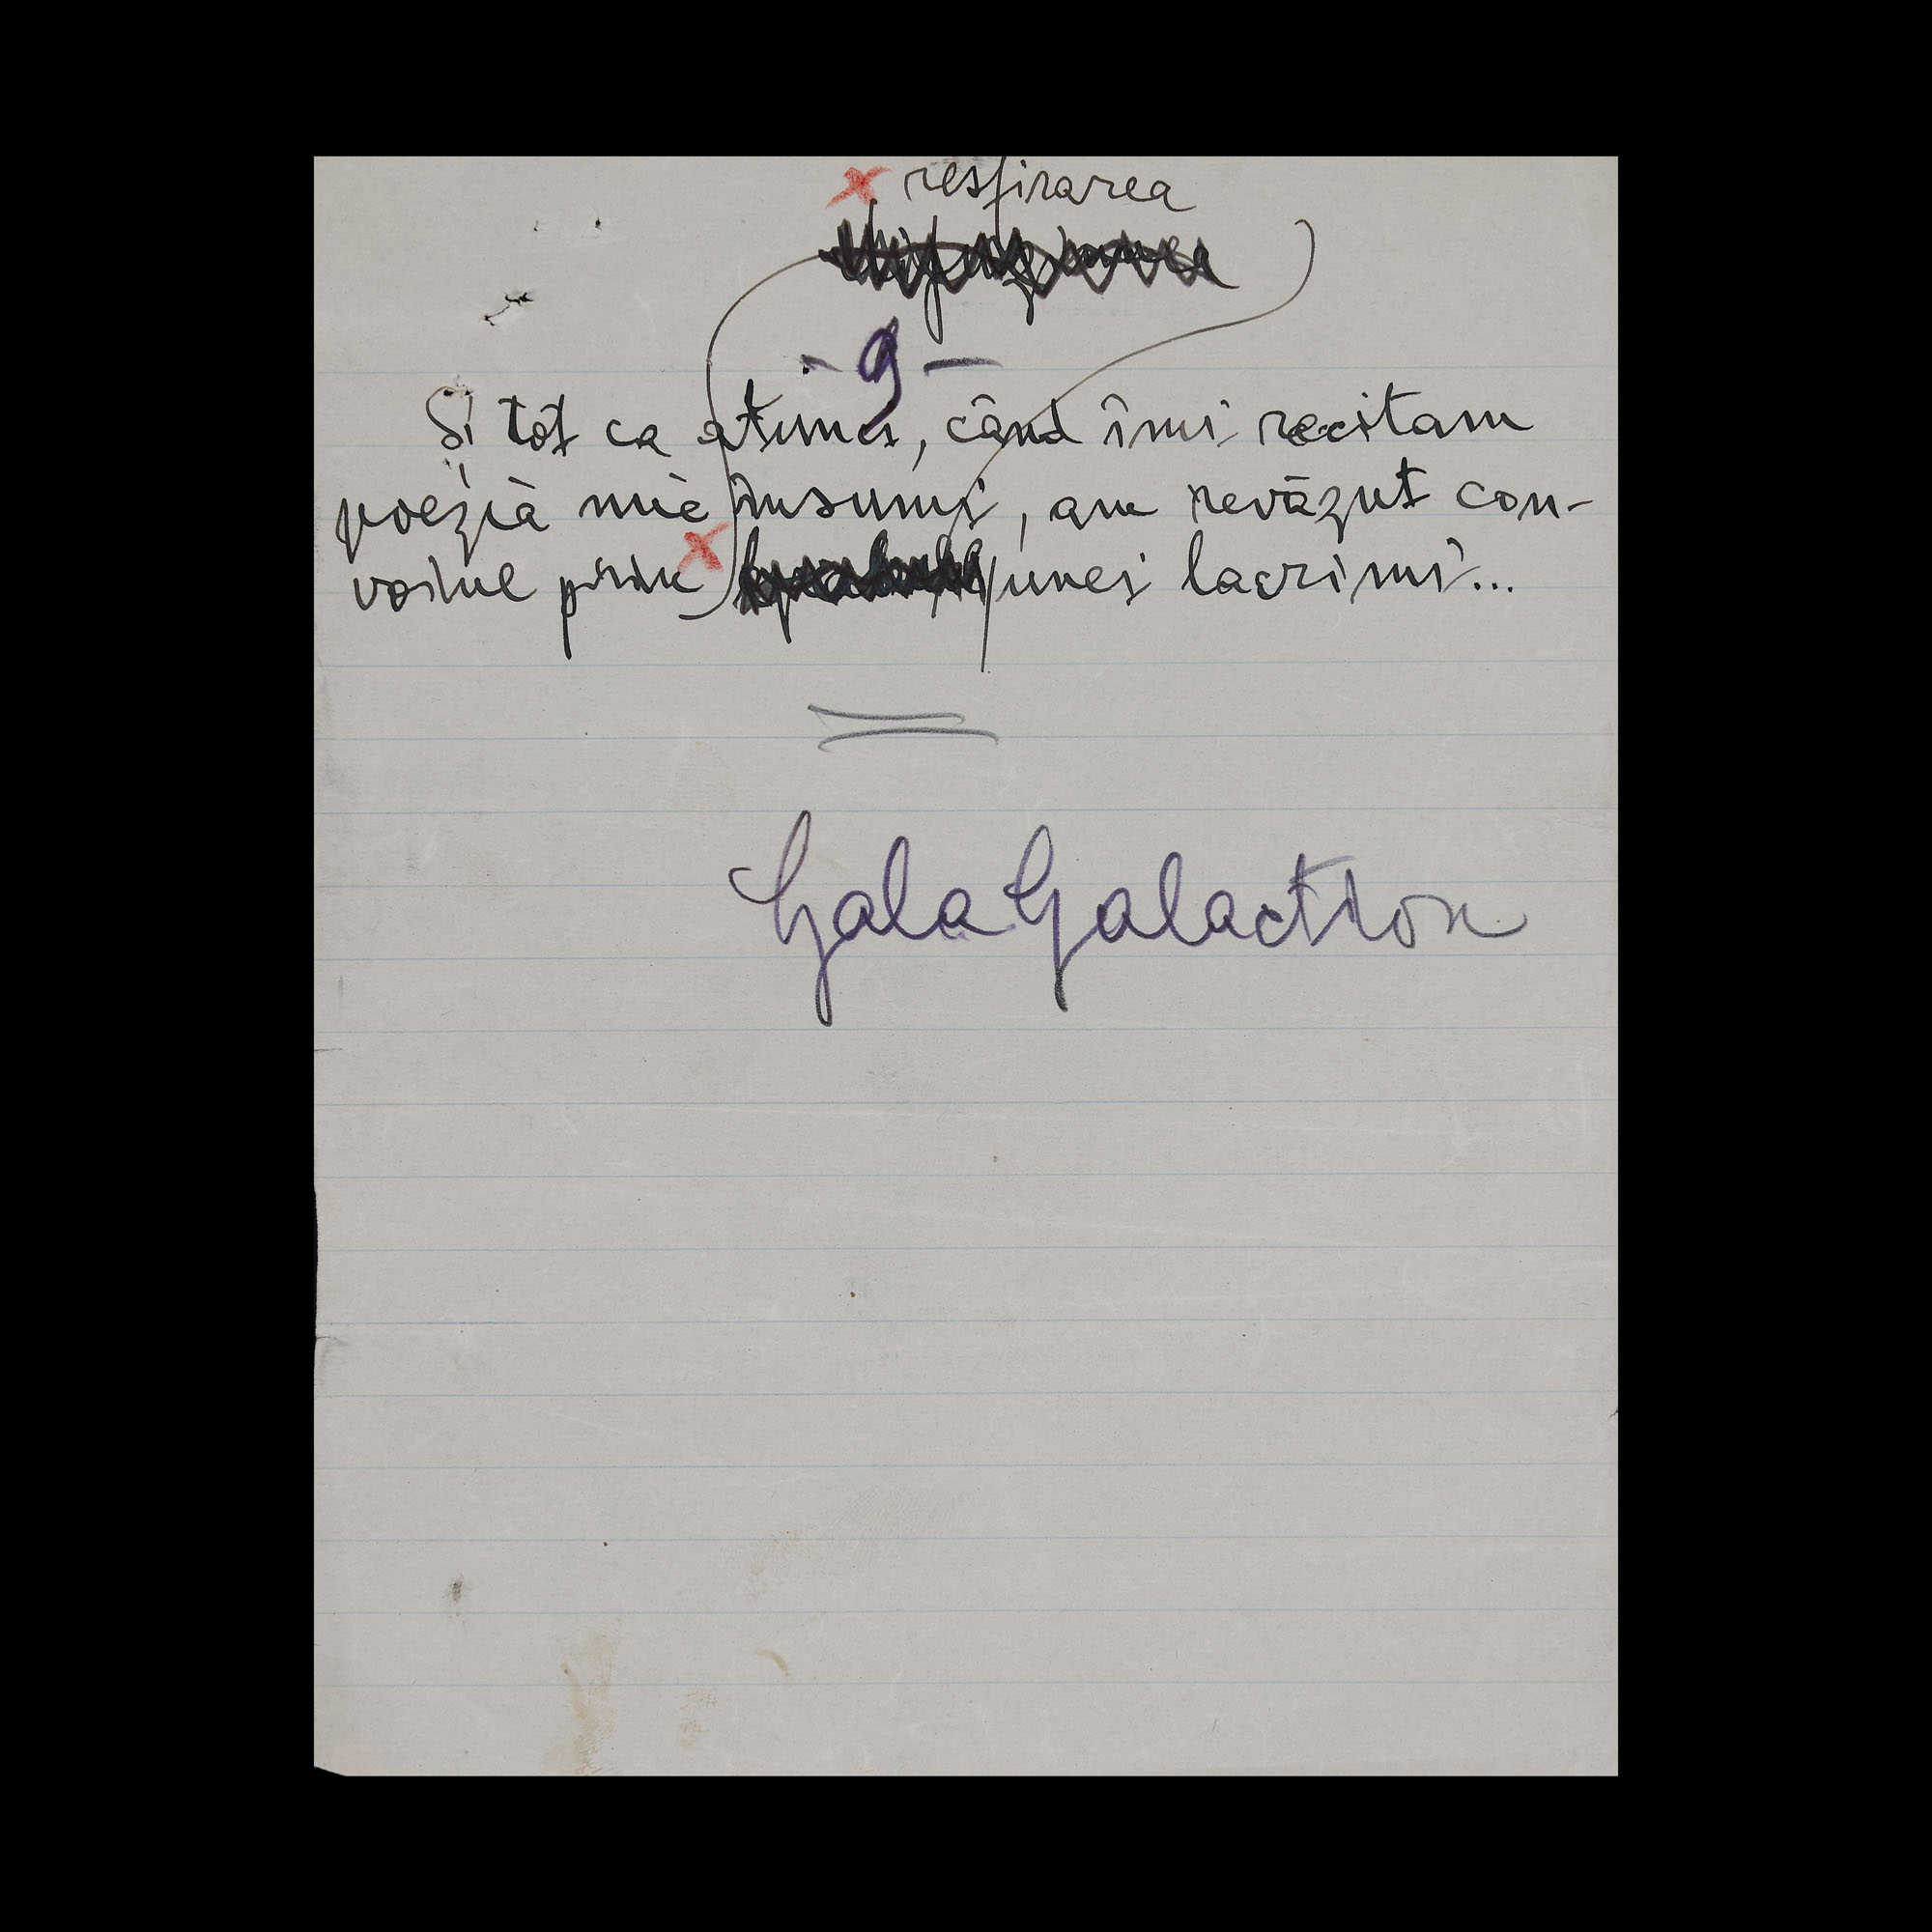 x resfirarea
- 9 -
Și tot ca atunci, când îmi recitam
poezia mie însumi, am revăzut con-
voiul prin x unei lacrimi...
Gala Galaction